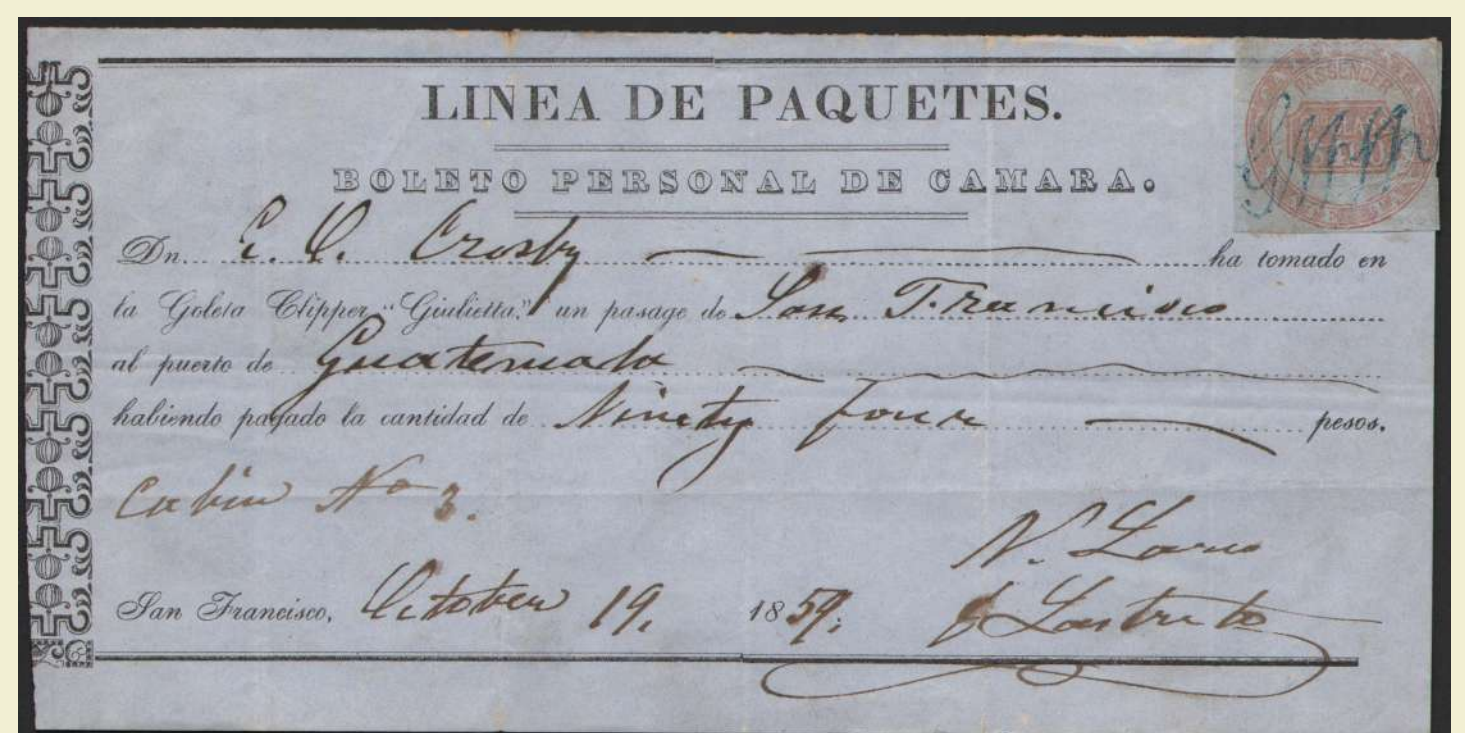 LINEA DE PAQUETES.
PASSENGER
BOLETO PERSONAL DE CAMARA.
Dn. E. O. Crosby ha tomado en
la Goleta Clipper "Giulietta," un pasage de San Francisco
al puerto de Guatemala
habiendo pagado la cantidad de Ninety four pesos.
Cabin No 3.
N. Larco
San Francisco, October 19, 1859. Lastreto